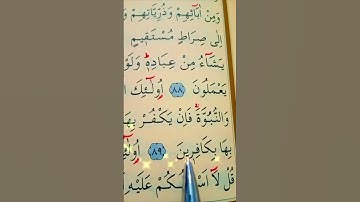 وَمِنْ اٰبَٓائِهِمْ وَذُرِّيَّاتِهِمْ وَ
اِلٰى صِرَاطٍ مُسْتَقٖيمٍ
يَشَٓاءُ مِنْ عِبَادِهٖ وَلَوْ
يَعْمَلُونَ ﴿٨٨﴾ اُولٰٓئِكَ
وَالنُّبُوَّةَ فَاِنْ يَكْفُرْ بِهَا
بِهَا بِكَافِرٖينَ ﴿٨٩﴾
قُلْ لَٓا اَسْـَٔلُكُمْ عَلَيْهِ